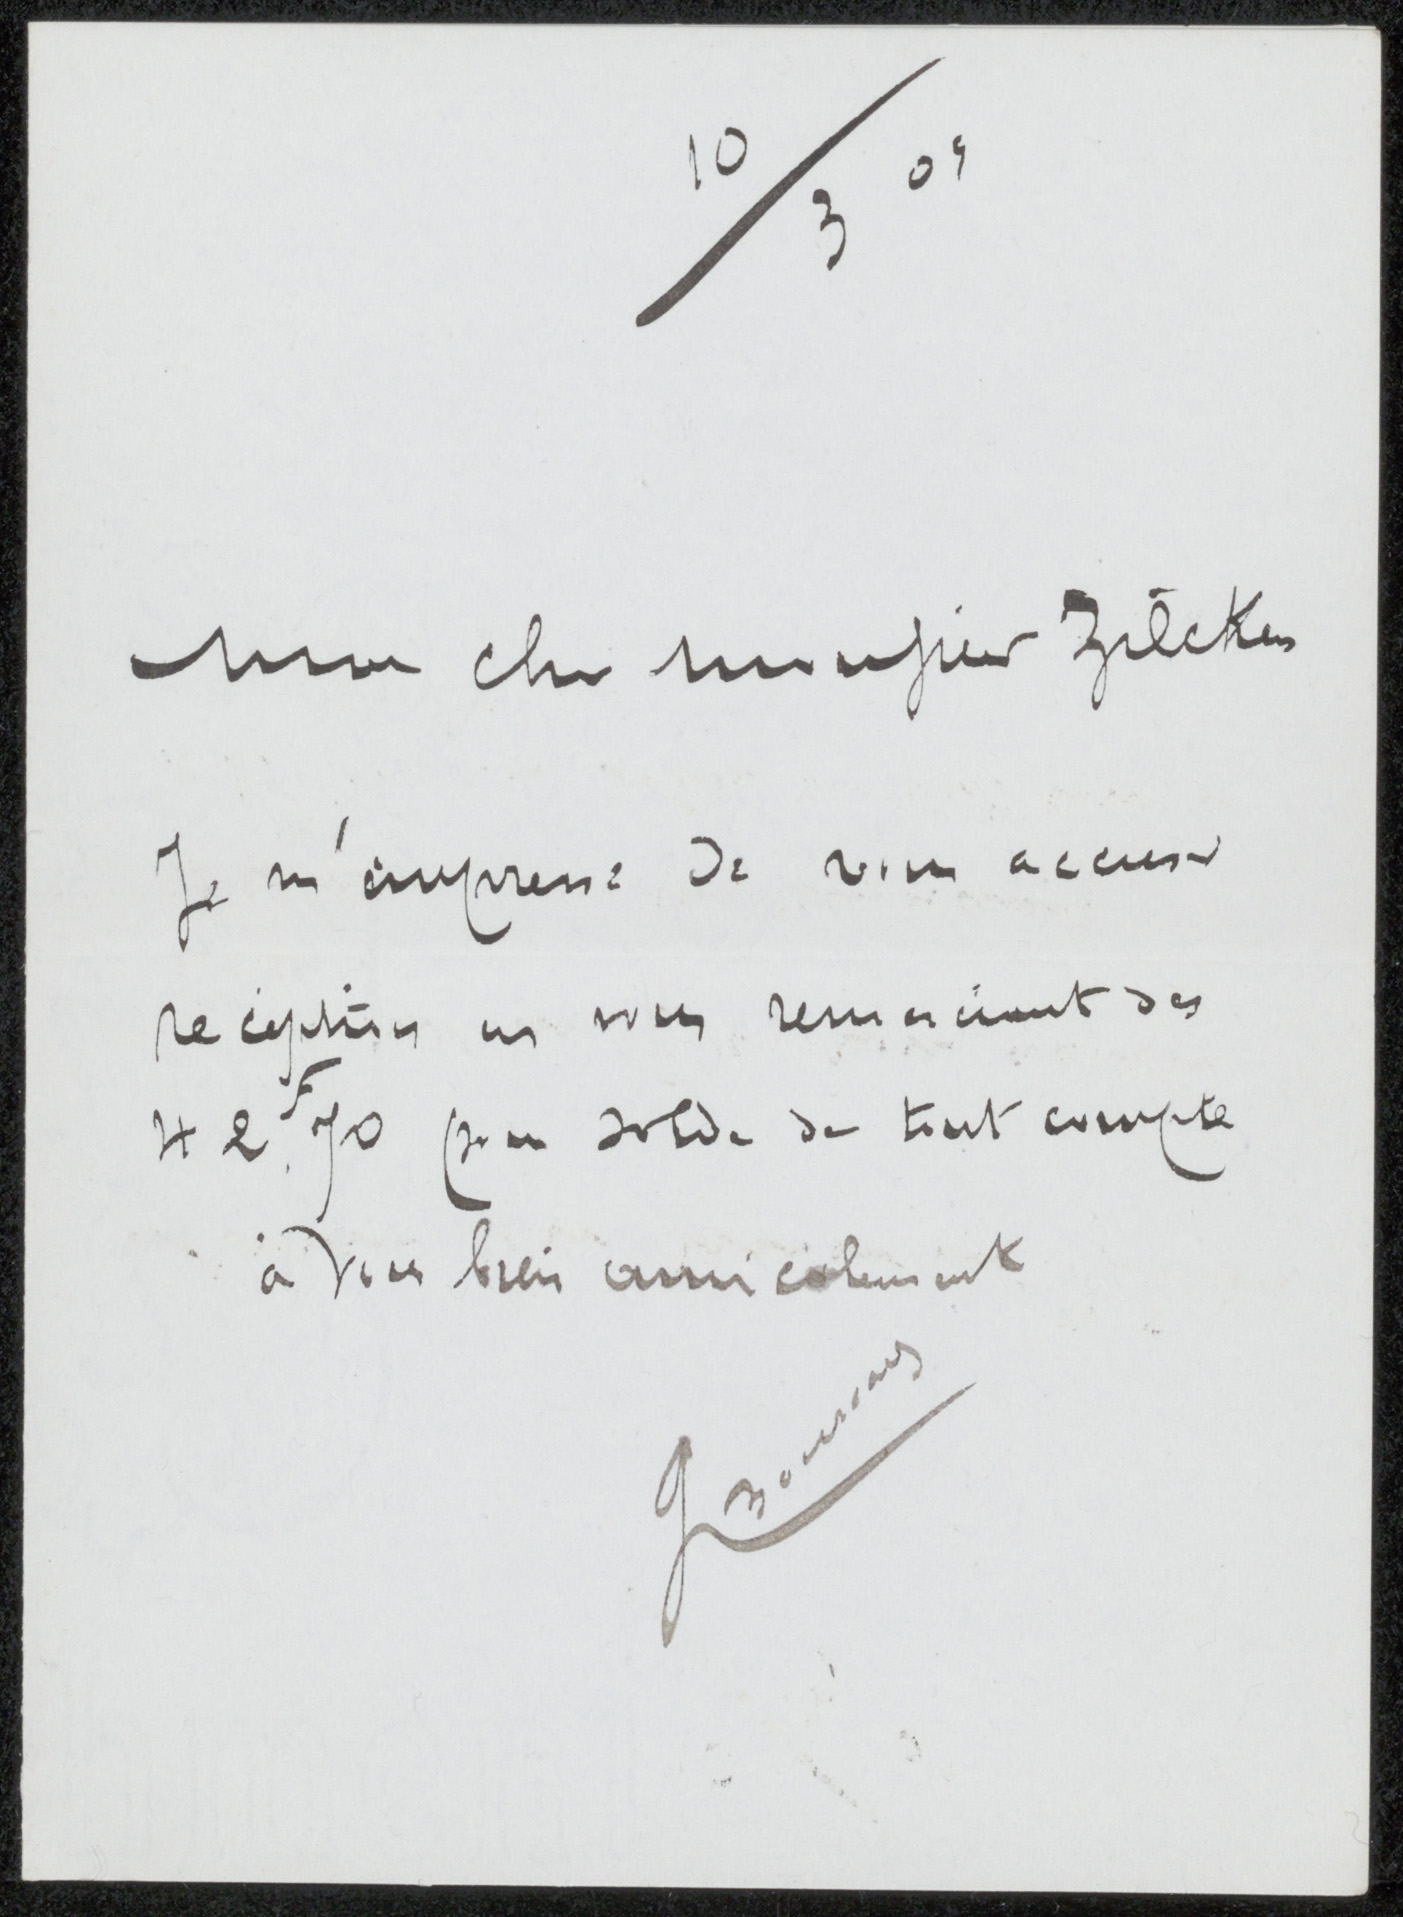 10/3 09
Mon cher Monsieur Zilcken
Je m'empresse de vous accuser
reception en vous remerciant des
42F.70 pour solde de tout compte
à vous bien amicalement